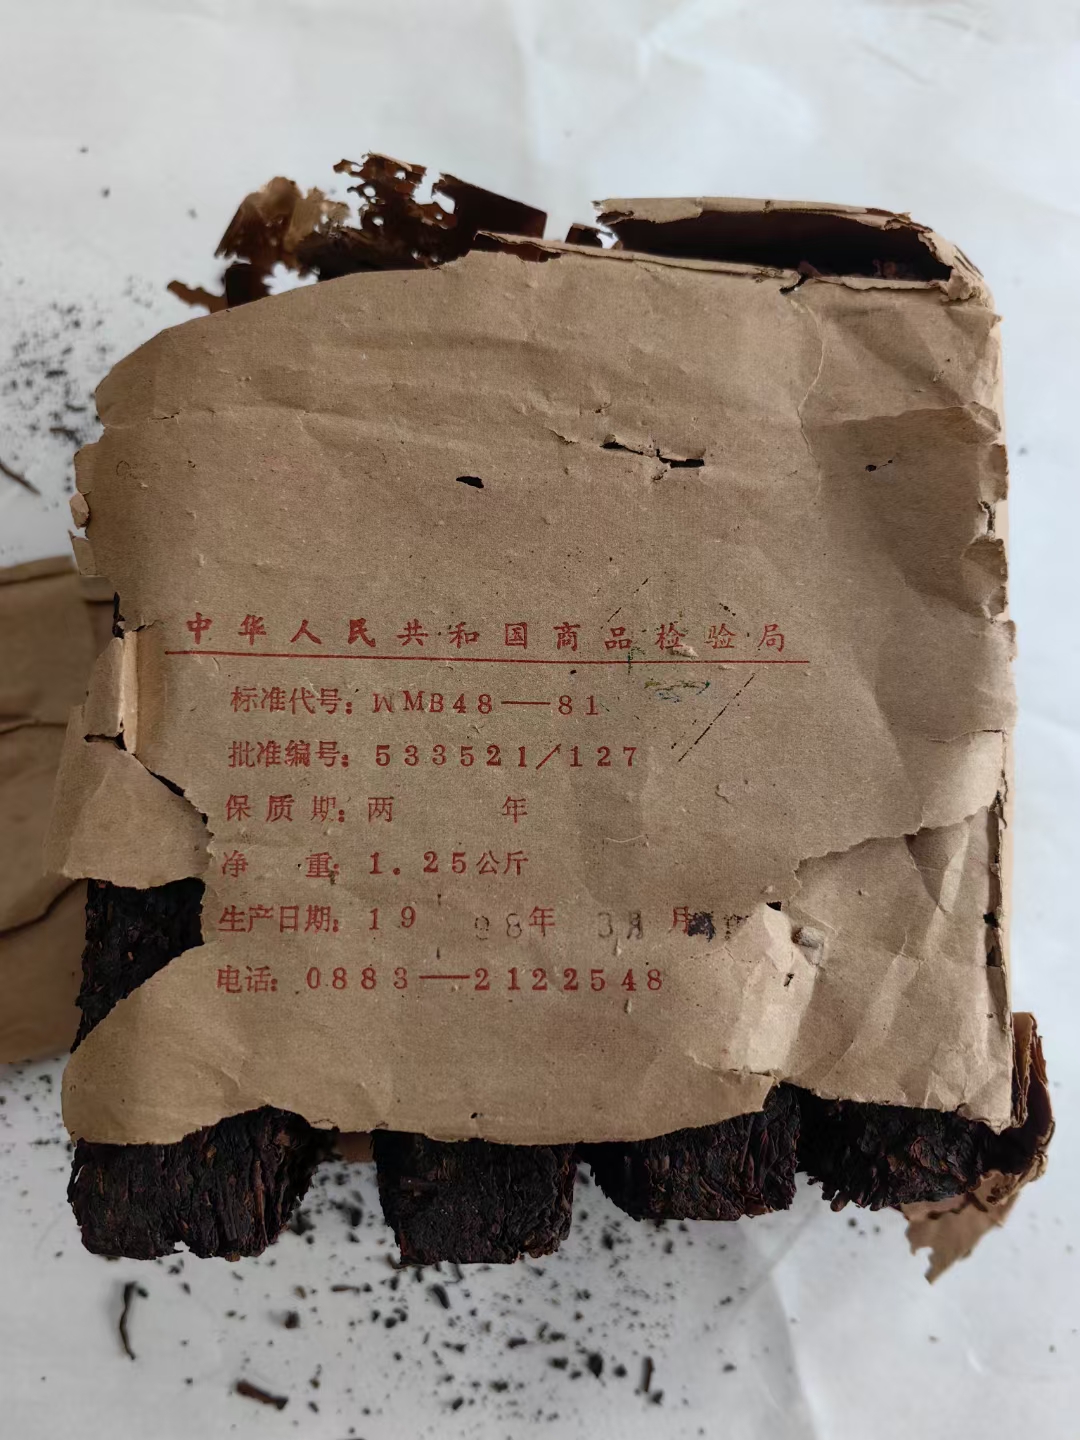 中华人民共和国商品检验局
标准代号：WMB48—81
批准编号：533521/127
保质期：两 年
净 重：1.25公斤
生产日期：19 98年 月
电话：0883—2122548